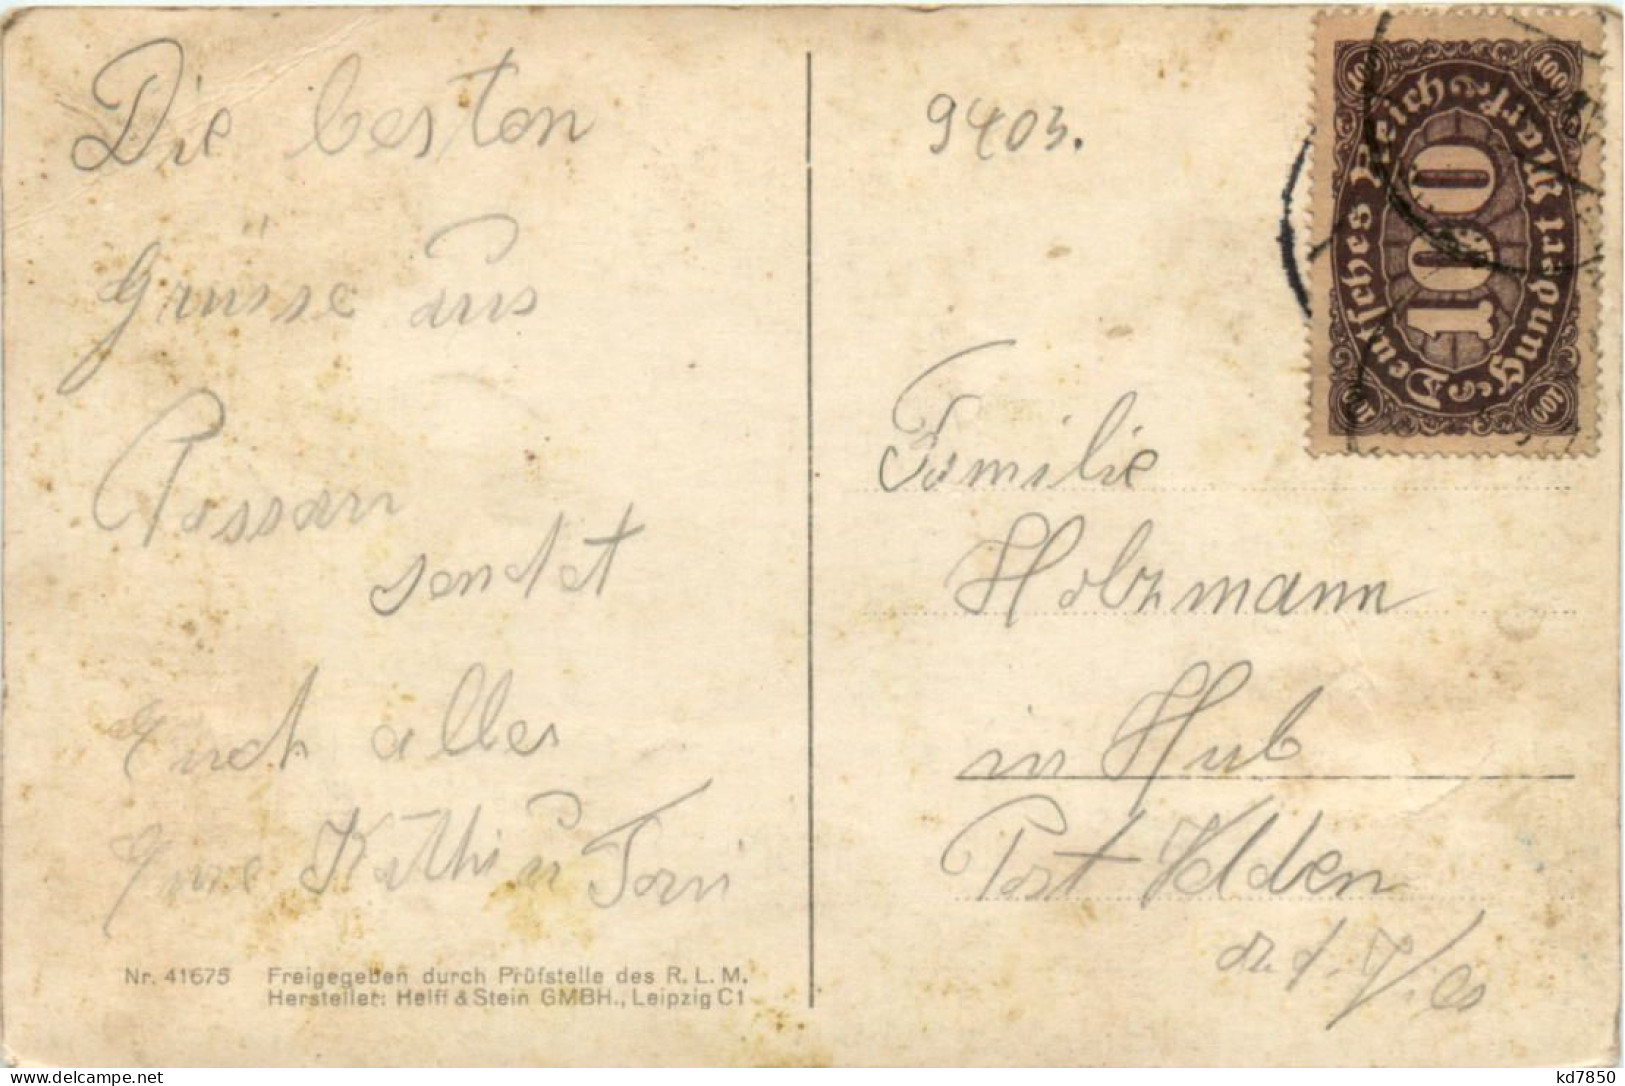 Die besten
Grüsse aus
Passau
sendet
Euch alles
Eure Kathi u Toni
Nr. 41675 Freigegeben durch Prüfstelle des R. L. M.
Hersteller: Helff & Stein GMBH., Leipzig C1
9403.
100
100
Deutsches Reich
100
Hundert Mark
100
100
Familie
Holzmann
in Hub
Post Velden
a. d. Vils
kd7850